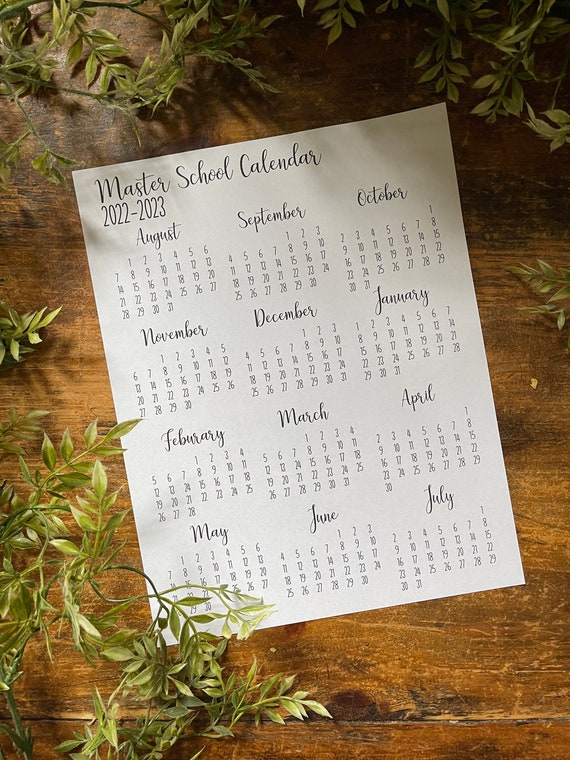 Master School Calendar
2022-2023
August
1 2 3 4 5 6
7 8 9 10 11 12 13
14 15 16 17 18 19 20
21 22 23 24 25 26 27
28 29 30 31
September
1 2 3
4 5 6 7 8 9 10
11 12 13 14 15 16 17
18 19 20 21 22 23 24
25 26 27 28 29 30
October
1
2 3 4 5 6 7 8
9 10 11 12 13 14 15
16 17 18 19 20 21 22
23 24 25 26 27 28 29
30 31
November
1 2 3 4 5
6 7 8 9 10 11 12
13 14 15 16 17 18 19
20 21 22 23 24 25 26
27 28 29 30
December
1 2 3
4 5 6 7 8 9 10
11 12 13 14 15 16 17
18 19 20 21 22 23 24
25 26 27 28 29 30 31
January
1 2 3 4 5 6 7
8 9 10 11 12 13 14
15 16 17 18 19 20 21
22 23 24 25 26 27 28
29 30 31
Feburary
1 2 3 4
5 6 7 8 9 10 11
12 13 14 15 16 17 18
19 20 21 22 23 24 25
26 27 28
March
1 2 3 4
5 6 7 8 9 10 11
12 13 14 15 16 17 18
19 20 21 22 23 24 25
26 27 28 29 30 31
April
1
2 3 4 5 6 7 8
9 10 11 12 13 14 15
16 17 18 19 20 21 22
23 24 25 26 27 28 29
30
May
1 2 3 4 5 6
7 8 9 10 11 12 13
14 15 16 17 18 19 20
22 23 24 25 26 27
30
June
1 2 3
4 5 6 7 8 9 10
11 12 13 14 15 16 17
18 19 20 21 22 23 24
25 26 27 28 29 30
July
1
2 3 4 5 6 7 8
9 10 11 12 13 14 15
16 17 18 19 20 21 22
23 24 25 26 27 28 29
30 31